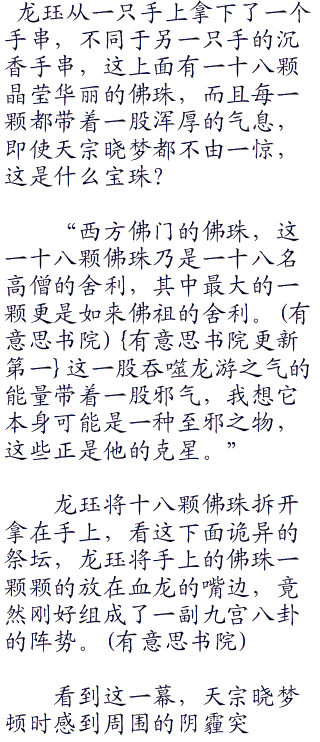 龙珏从一只手上拿下了一个
手串，不同于另一只手的沉
香手串，这上面有一十八颗
晶莹华丽的佛珠，而且每一
颗都带着一股浑厚的气息，
即使天宗晓梦都不由一惊，
这是什么宝珠？
“西方佛门的佛珠，这
一十八颗佛珠乃是一十八名
高僧的舍利，其中最大的一
颗更是如来佛祖的舍利。(有
意思书院) {有意思书院更新
第一} 这一股吞噬龙游之气的
能量带着一股邪气，我想它
本身可能是一种至邪之物，
这些正是他的克星。”
龙珏将十八颗佛珠拆开
拿在手上，看这下面诡异的
祭坛，龙珏将手上的佛珠一
颗颗的放在血龙的嘴边，竟
然刚好组成了一副九宫八卦
的阵势。(有意思书院)
看到这一幕，天宗晓梦
顿时感到周围的阴霾突